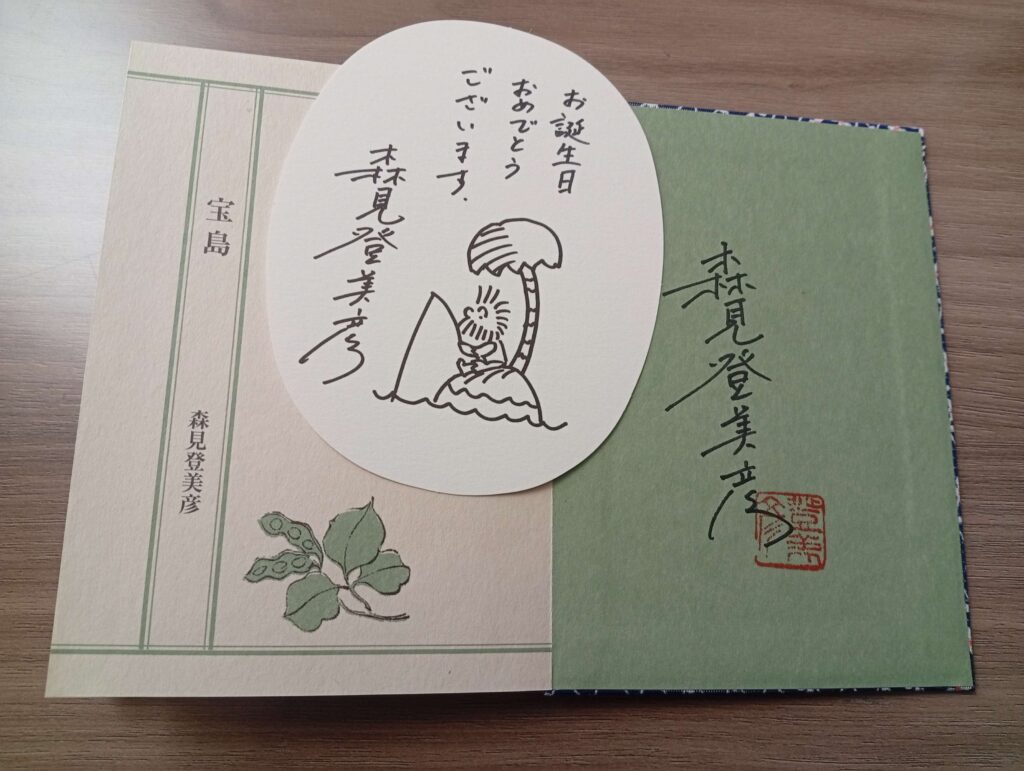 宝島
森見登美彦
お誕生日
おめでとう
ございます.
森見登美彦
森見登美彦
登美彦